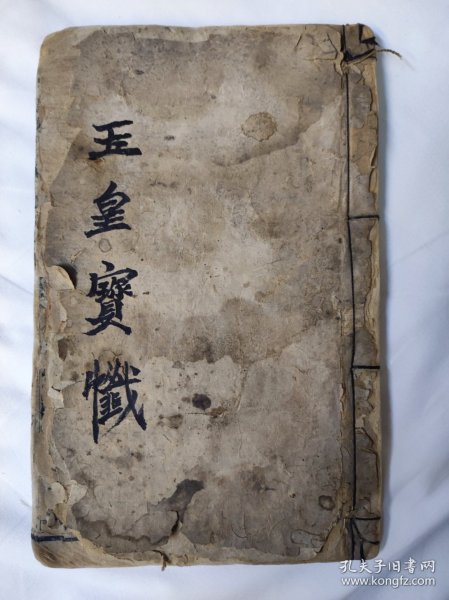 玉皇寳懺
孔夫子旧书网
www.kongfz.com